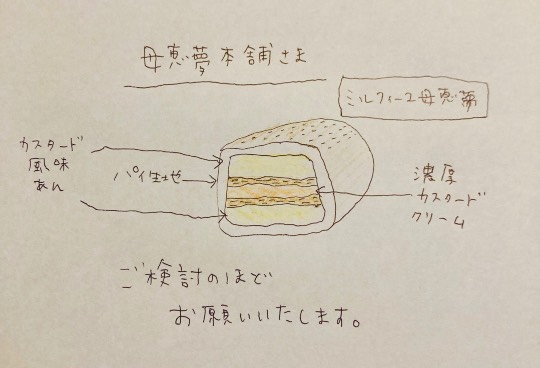 母恵夢本舗さま
ミルフィーユ母恵夢
カスタード
風味
あん
パイ生地
濃厚
カスタード
クリーム
ご検討のほど
お願いいたします。